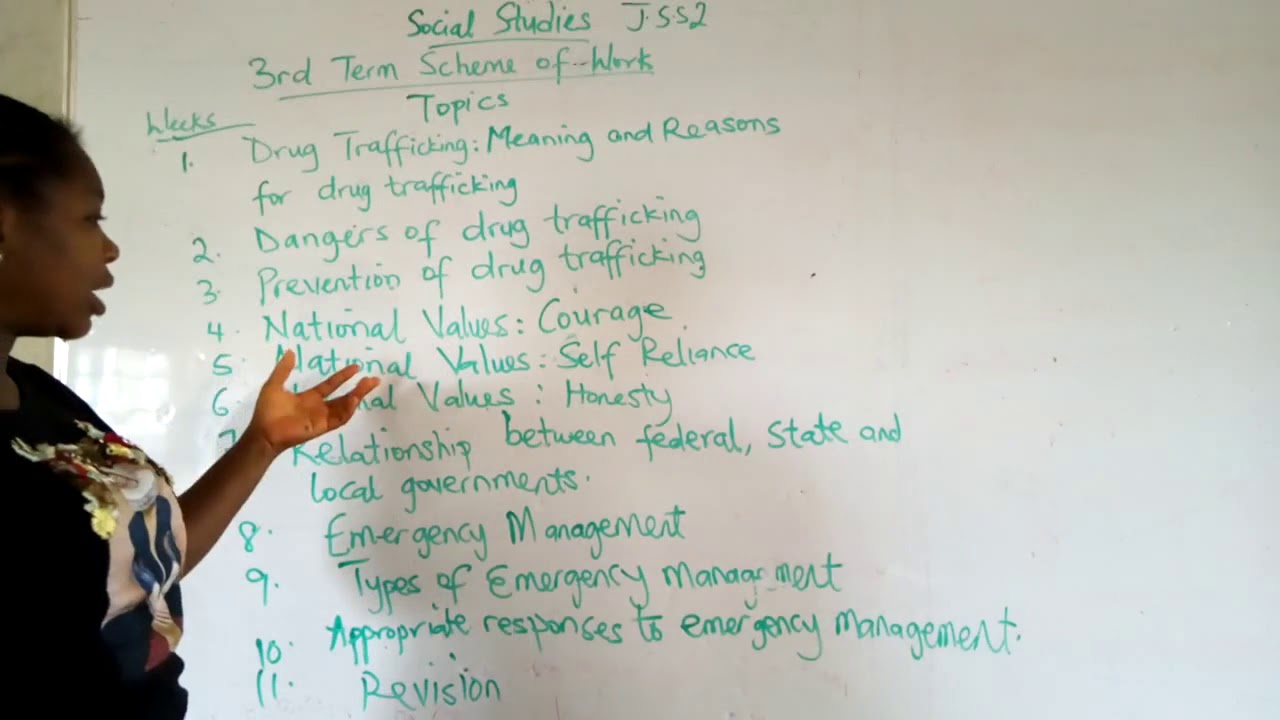 Social Studies J.S.S2
3rd Term Scheme of Work
Topics
Weeks
1. Drug Trafficking: Meaning and Reasons
for drug trafficking
2. Dangers of drug trafficking
3. Prevention of drug trafficking
4. National Values: Courage
5. National Values: Self Reliance
6. Values: Honesty
7. Relationship between federal, State and
local governments.
8. Emergency Management
9. Types of Emergency Management
10. Appropriate responses to emergency management.
11. Revision